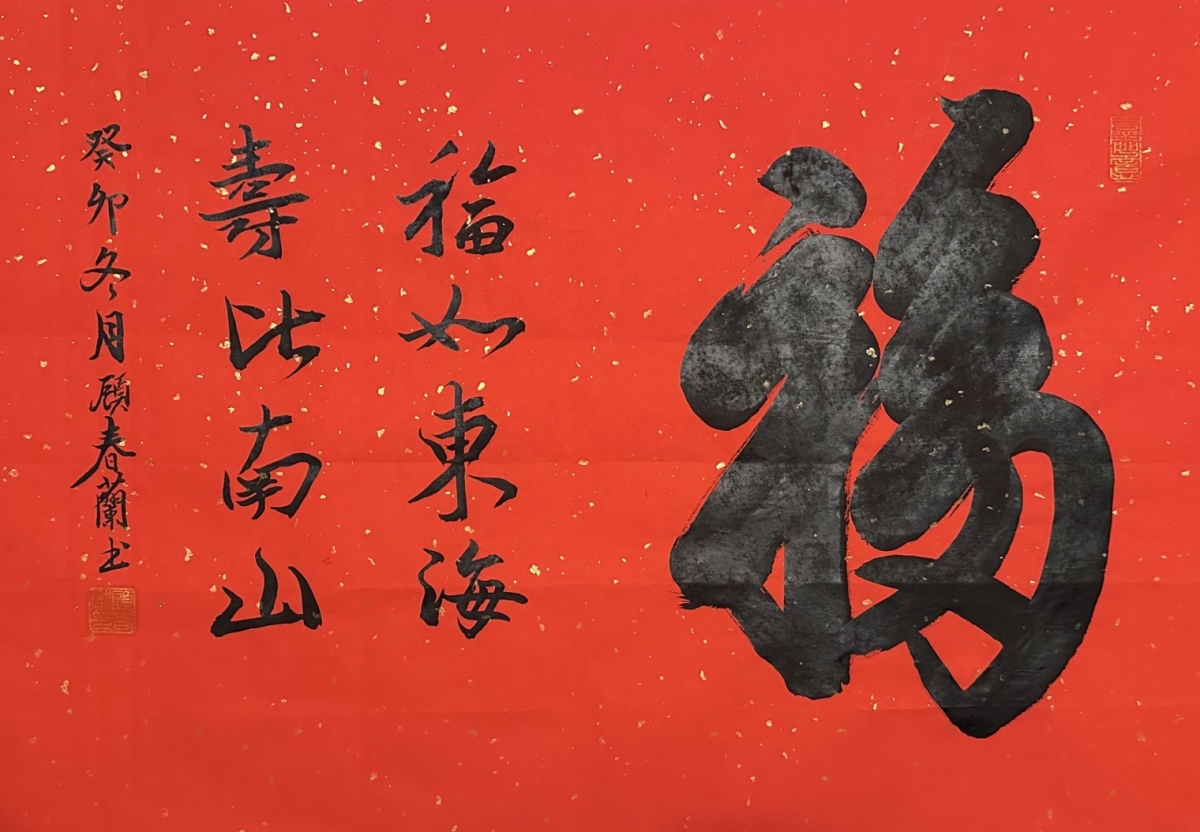 福
福如東海
壽比南山
癸卯冬月顧春蘭书